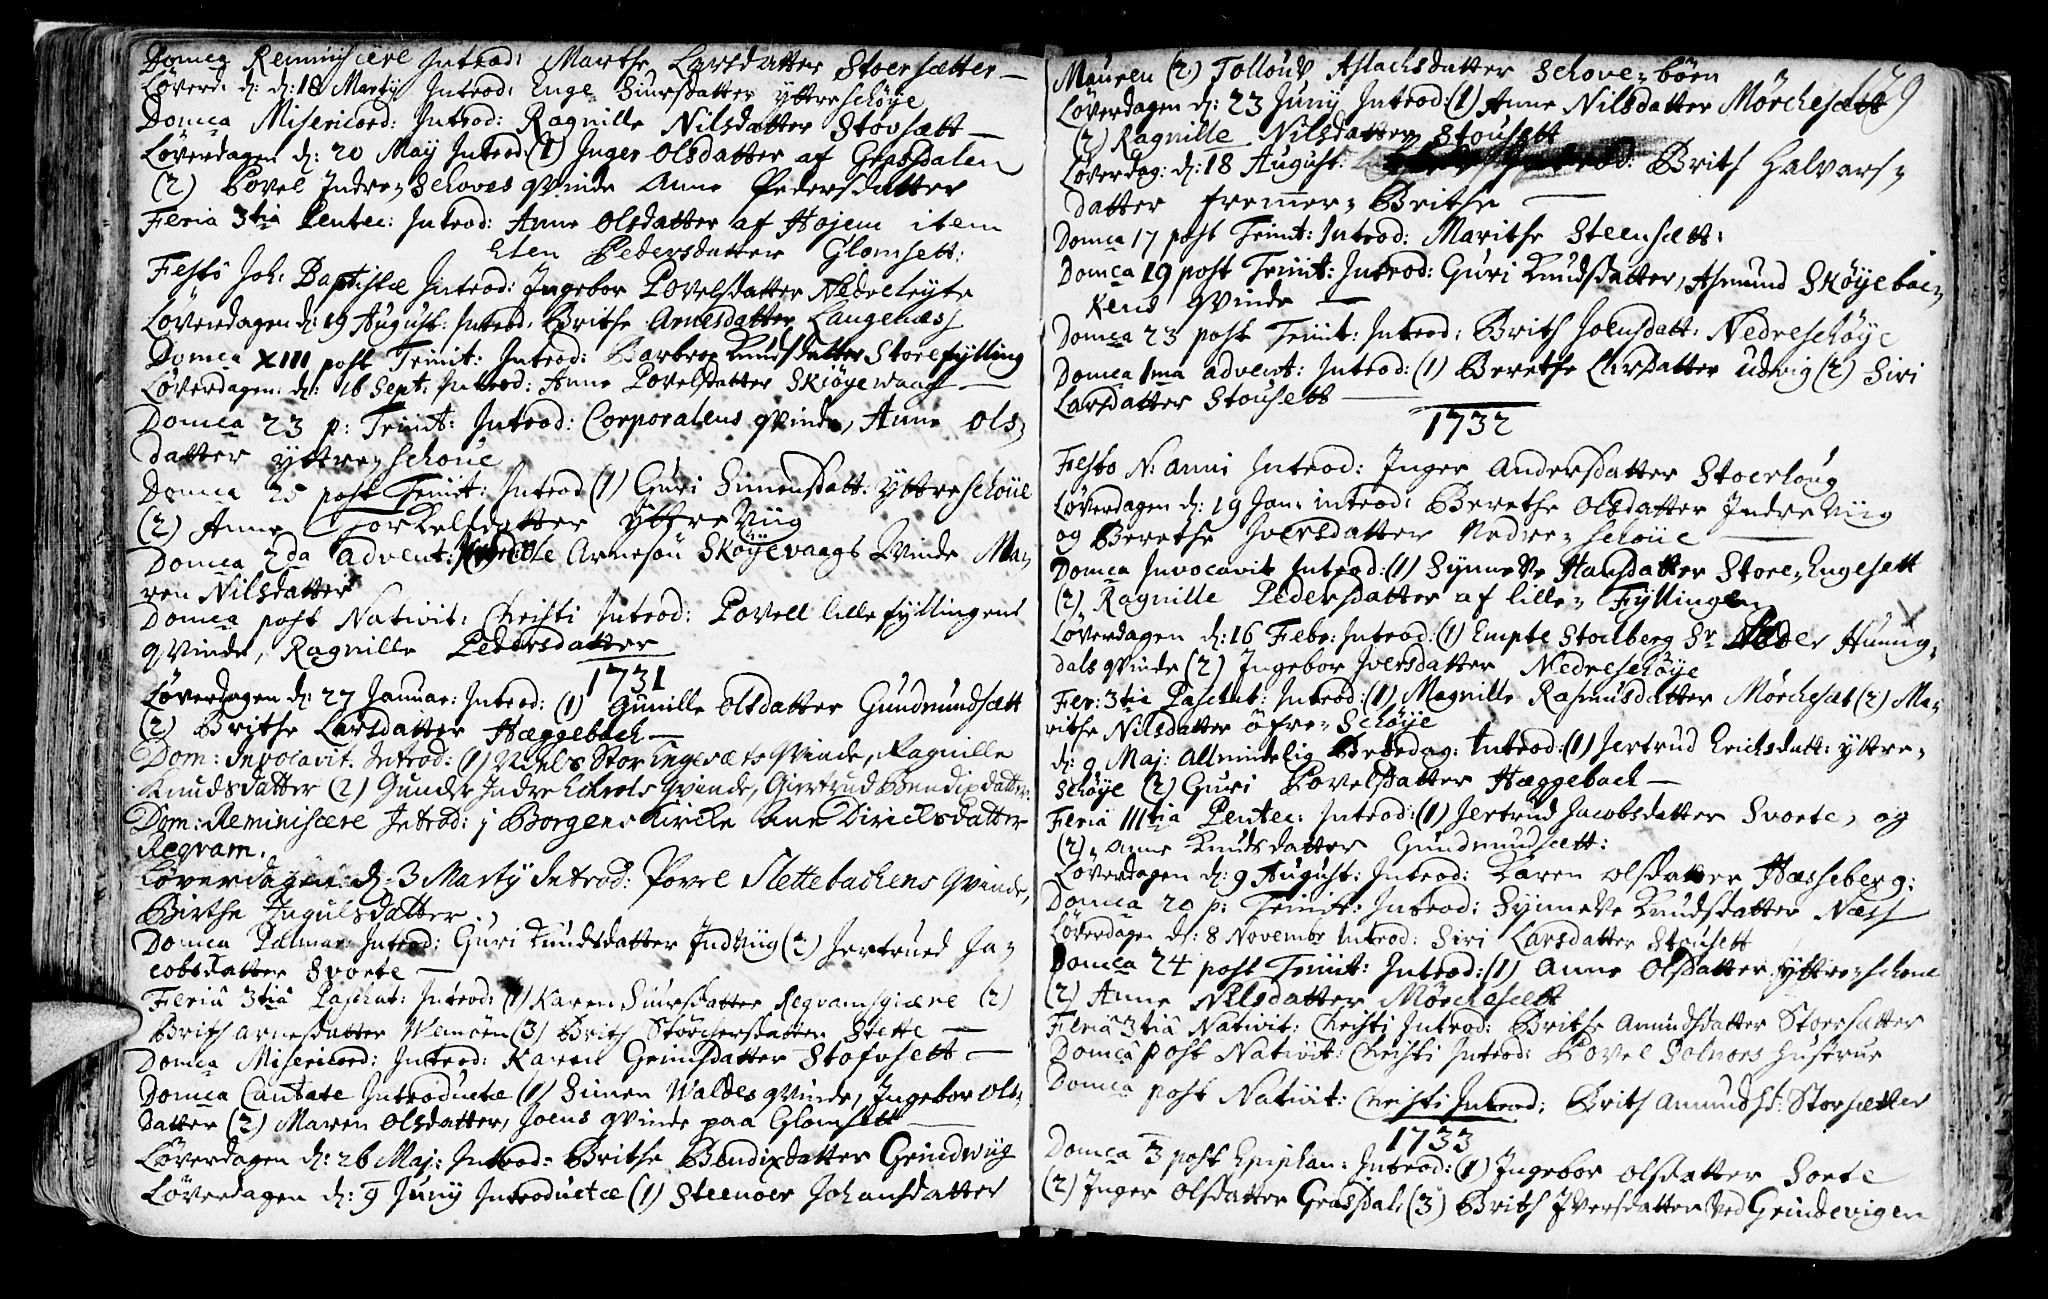 Domca Reminiscere Introd: Marthe Larsdatter Stoersætter —
Løverd: d: 18 Martij Introd: Enge Siursdatter yttreschöye
Domca Misericord: Introd: Ragnille Nilsdatter Stovsætt —
Løverdagen d: 20 Maij Introd: (1) Inger Olsdatter af Grosdalen
(2) Povel Indre-Schoves qvinde Anne Pedersdatter
Feria 3tia Pentec: Introd: Anne Olsdatter af Hojem item
Elen Pedersdatter Glomsett:
Festo Joh: Baptistæ Introd: Ingebor Povelsdatter Nedreleyte
Løverdagen d: 19 August: Introd. Brithe Arnesdatter Langenæss
Domca XIII post Trinit: Introd: Barbroe Knudsdatter Storefylling
Løverdagen: d: 16 Sept: Introd: Anne Povelsdatter Skiöyewaag —
Domca 23 p: Trinit: Introd: Corporalens qvinde, Anne Ols-
datter yttre-schoüe
Domca 25 post Trinit: Introd (1) Guri Simensdatt: yttreschoüe
(2) Anne Torkelsdatter yttreViig
Domca 2da Advent: Arnesøn Sköyevaags Qvinde Ma-
ren Nilsdatter
Domca post Nativit: Christi Introd: Povell lillefyllingens
qvinde, Ragnille Pedersdatter
1731
Løverdagen d: 27 Januar: Introd: (1) Gunille Olsdatter Gundmundsætt
(2) Brithe Larsdatter Hæggebach —
Dom: Invocavit. Introd: (1) Niels Storengesæts Qvinde, Ragnille
Knudsdatter (2) Gunder Indre Qvinde, Giertrud Bendixdatter.
Dom: Reminiscere Introd: j Borgens Kircke Ane Diricksdatter
Reqvam.
Løverdagen d: 3 Martij Introd: Povel Slettebachens Qvinde,
Birthe Ingulsdatter
Domca Palmar: Introd: Guri Knudsdatter Indviig (2) Jertrued Ja-
cobsdatter Svorte —
Feriâ 3tiâ Paschat: Introd: (1) Karen Siursdatter Reqvamsgiære (2)
Brith Arnesdatter Vlemöen (3) Brith Störchersdatter Slette —
Domca Misericord: Introd: Karen Grimsdatter Stofvsett —
Domca Cantate Introductæ (1) Simen Waldes qvinde, Ingebor Ols-
datter (2) Maren Olsdatter, Joens qvinde paa Glomsett —
Løverdagen d: 26 Maj: Introd: Brithe Bendixdatter Grindwiig
Løverdagen d: 9 Junij Introductæ (1) Steenoer Johansdatter
Mauren (2) Tolloüv Aslachsdatter Schove-böen
Løverdagen d: 23 Junij Introd: (1) Anne Nilsdatter Mörchesætt
(2) Ragnille Nilsdatter Stousett
Løverdag: d: 18 August: Introd: Brith Halvars-
datter fremer-Brithe —
Domca 17 post Trinit: Introd: Marithe Steensætt:
Domca 19 post Trinit: Introd: Guri Knudsdatter, Asmund Sköyebac-
kens qvinde —
Domca 23 post Trinit: Introd: Brith Joensdatt: Nedreschöye
Domca 1ma Advent: Introd: (1) Berethe Larsdatter Udvig (2) Siri
Larsdatter Stousett —
1732
Festo N: Anni Introd: Inger Andersdatter Stoerloug
Løverdagen d: 19 Jan: introd: Berethe Olsdatter IndreViig
og Berethe Iversdatter Nedre-schoüe —
Domca Invocavit Introd: (1) Synneve Hansdatter Store-Engesett
(2) Ragnille Pedersdatter af lille-Fyllingen
Løverdagen d: 16 Febr: Introd: (1) Empte Stoelberg Sr Peder Hunnig-
dals qvinde (2) Ingebor Iversdatter Nedreschöye
Fer: 3tia Paschat: Introd: (1) Magnille Rasmusdatter Mörchesæt (2) Ma-
rithe Nilsdatter öfre-Schöye
d: 9 Maj: Allmindelig Bededag: Introd: (1) Jertrud Erichsdatt: yttre-
schöye (2) Guri Povelsdatter Hæggebach —
Feria IIItia Pentec: Introd: (1) Jertrud Jacobsdatter Svorte, og
(2) Anne Knudsdatter Gundmundsætt:
Løverdagen d: 9 August: Introd: Karen Olsdatter Hæsseberg:
Domca 20 p: Trinit: Introd: Synneve Knudsdatter Næss
Løverdagen d: 8 Novembr Introd: Siri Larsdatter Stousett
Domca 24 post Trinit: Introd: (1) Anne Olsdatter yttre-schoue
(2) Anne Nilsdatter Mörchesett
Feriâ 3tiâ Nativit: Christi Introd: Brithe Amundsdatter Stoersætter
Domca post Nativit: Christi Introd: Povel Solnoes Hustrue
Domca post Nativit: Christi Introd: Brith Amundsd: Storsætter
1733
Domca 3 post Epiphan: Introd: (1) Ingebor Olsdatter Sorte
(2) Inger Olsdatter Grasdal, (3) Brith Iversdatter ved Grindevigen